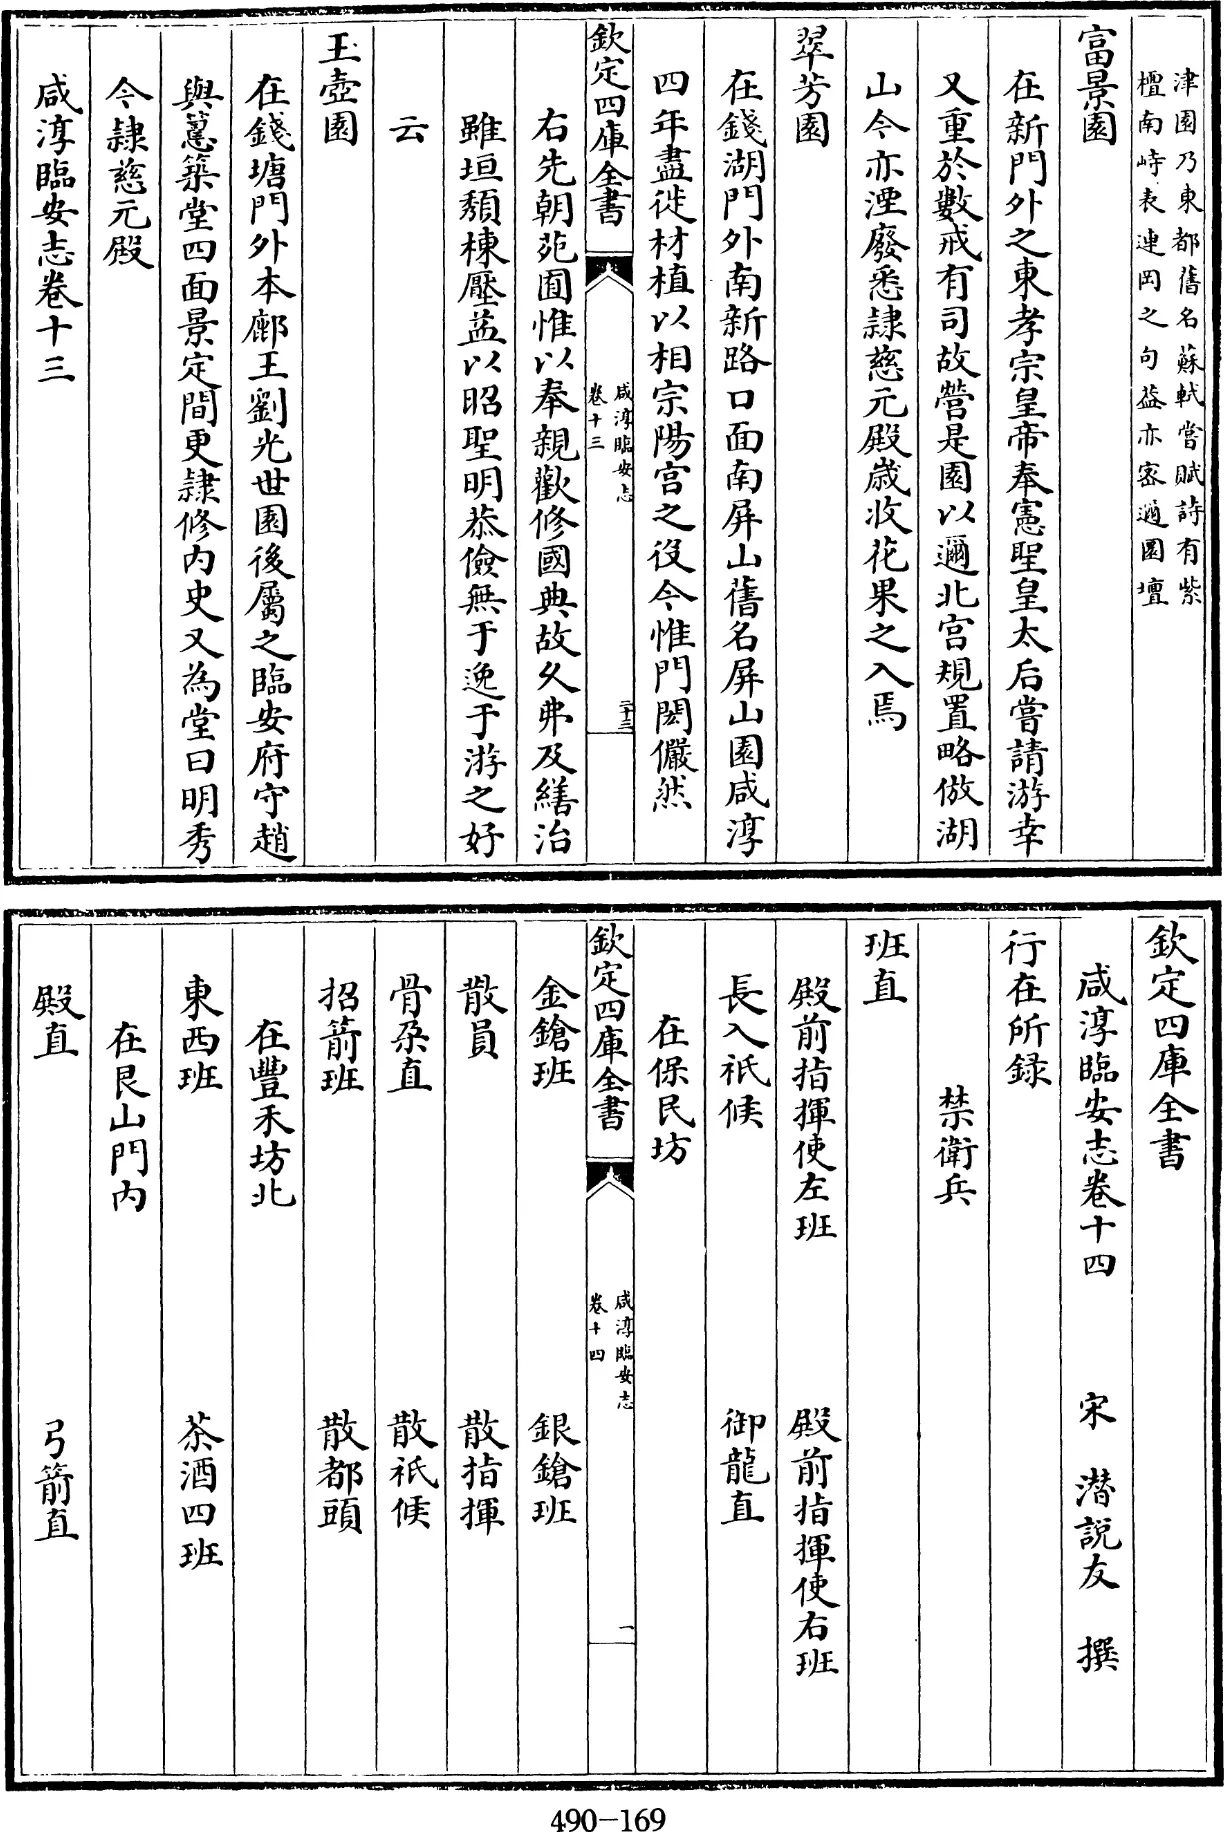 津園乃東都舊名蘇軾嘗賦詩有紫
檀南峙表連岡之句益亦密邇圜壇
富景園
在新門外之東孝宗皇帝奉憲聖皇太后嘗請游幸
又重於數戒有司故營是園以邇北宫規置略倣湖
山今亦湮廢悉隷慈元殿歳收花果之入焉
翠芳園
在錢湖門外南新路口面南屏山舊名屏山園咸淳
四年盡徙材植以相宗陽宫之役今惟門閎儼然
欽定四庫全書
咸淳臨安志
卷十三
二十三
右先朝苑囿惟以奉親歡修國典故久弗及繕治
雖垣頹棟壓益以昭聖明恭儉無于逸于游之好
云
玉壺園
在錢塘門外本鄜王劉光世園後屬之臨安府守趙
與𥲅築堂四面景定間更隷修内史又為堂曰明秀
今隷慈元殿
咸淳臨安志卷十三
欽定四庫全書
咸淳臨安志卷十四 宋 潛說友 撰
行在所録
禁衛兵
班直
殿前指揮使左班 殿前指揮使右班
長入祇候 御龍直
在保民坊
欽定四庫全書
咸淳臨安志
卷十四
一
金鎗班 銀鎗班
散員 散指揮
骨朶直 散祇候
招箭班 散都頭
在豐禾坊北
東西班 茶酒四班
在艮山門内
殿直 弓箭直
490-169